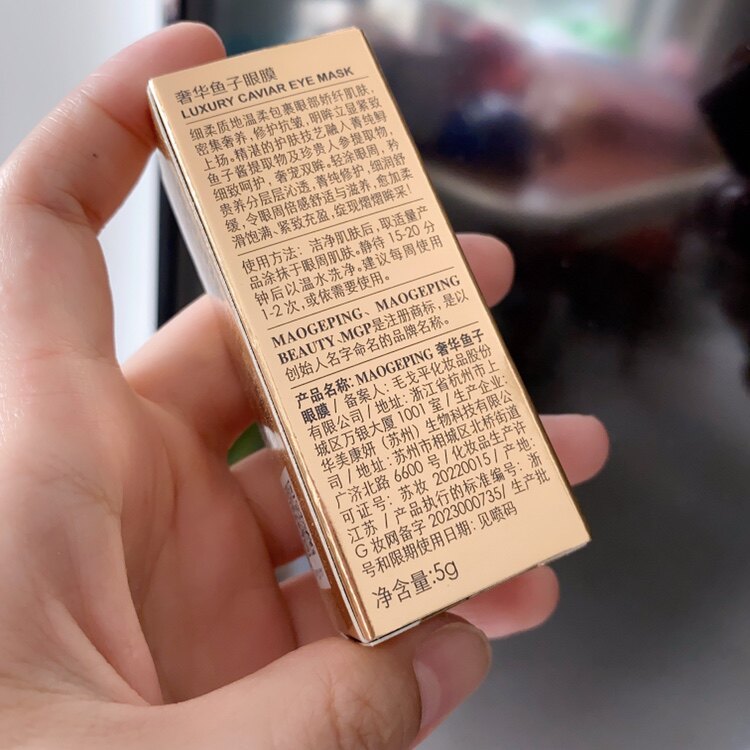 奢华鱼子眼膜
LUXURY CAVIAR EYE MASK
细柔质地温柔包裹眼部娇纤肌肤,
密集奢养, 修护抗皱, 明眸立显紧致
上扬。精湛的护肤技艺融入菁纯鲟
鱼子酱提取物及珍贵人参提取物,
细致呵护, 奢宠双眸。轻涂眼周, 矜
贵养分层层沁透, 菁纯修护, 细润舒
缓, 令眼周倍感舒适与滋养, 愈加柔
滑饱满、紧致充盈, 绽现熠熠眸采!
使用方法: 洁净肌肤后, 取适量产
品涂抹于眼周肌肤。静待 15-20 分
钟后以温水洗净。建议每周使用
1-2 次, 或依需要使用。
MAOGEPING、MAOGEPING
BEAUTY、MGP是注册商标, 是以
创始人名字命名的品牌名称。
产品名称: MAOGEPING 奢华鱼子
眼膜 / 备案人: 毛戈平化妆品股份
有限公司 / 地址: 浙江省杭州市上
城区万银大厦 1001 室 / 生产企业:
华美康妍 (苏州) 生物科技有限公
司 / 地址: 苏州市相城区北桥街道
广济北路 6600 号 / 化妆品生产许
可证号: 苏妆 20220015 / 产地:
江苏 / 产品执行的标准编号: 浙
G 妆网备字 2023000735/ 生产批
号和限期使用日期: 见喷码
净含量:5g